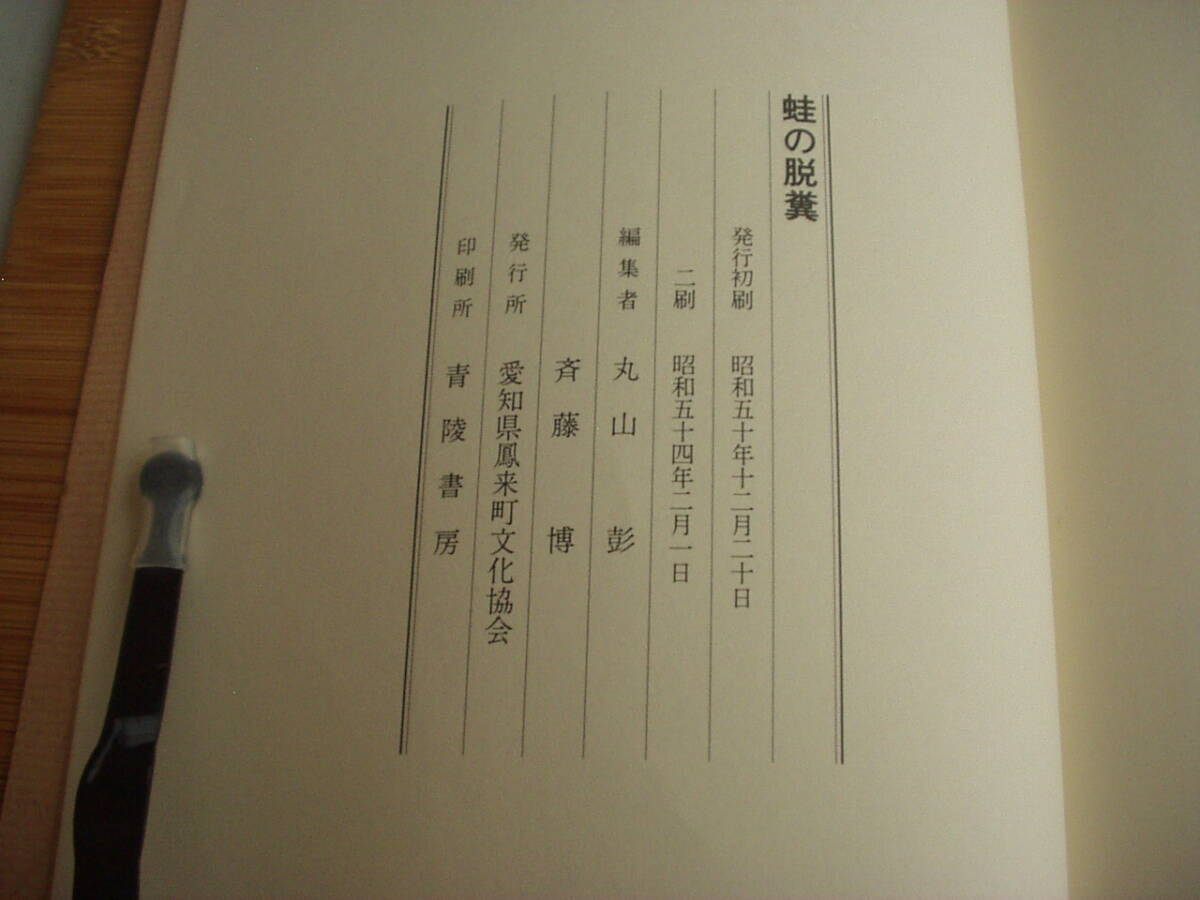 蛙の脱糞
発行初刷 昭和五十年十二月二十日
二刷 昭和五十四年二月一日
編集者 丸山彭
斉藤博
発行所 愛知県鳳来町文化協会
印刷所 青陵書房